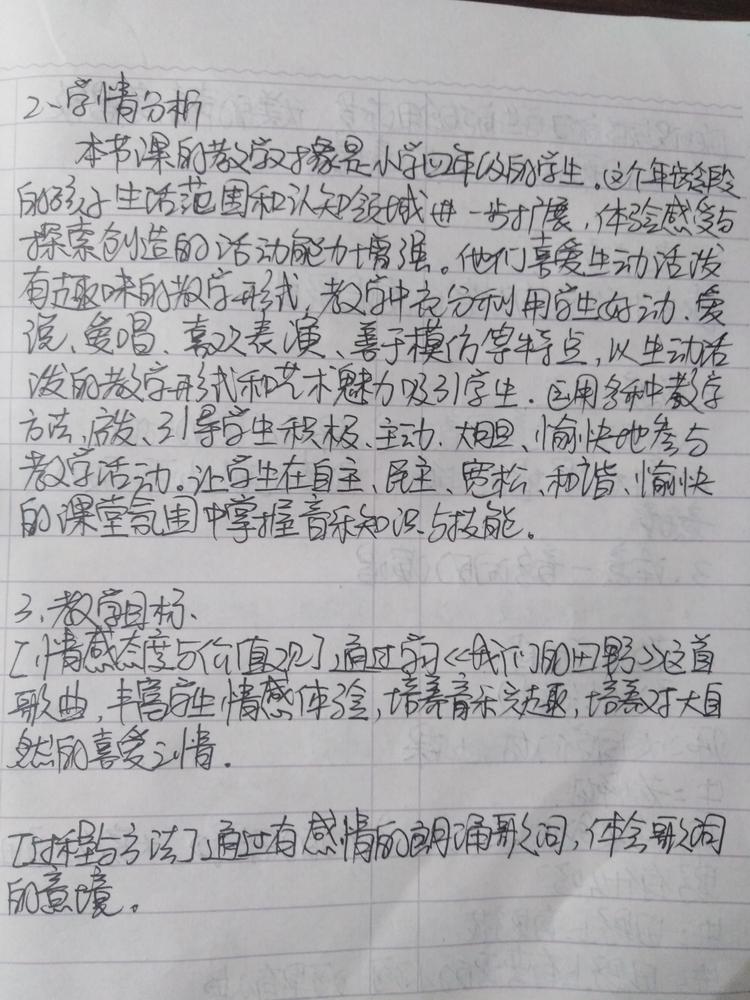 2、学情分析
本节课的教学对象是小学四年级的学生。这个年龄段
的孩子生活范围和认知领域进一步扩展，体验感受与
探索创造的活动能力增强。他们喜爱生动活泼
有趣味的教学形式，教学中充分利用学生好动、爱
说、爱唱、喜欢表演、善于模仿等特点，以生动活
泼的教学形式和艺术魅力吸引学生。运用多种教学
方法，启发、引导学生积极、主动、大胆、愉快地参与
教学活动。让学生在自主、民主、宽松、和谐、愉快
的课堂氛围中掌握音乐知识与技能。
3、教学目标、
[情感态度与价值观]通过学习《我们的田野》这首
歌曲，丰富学生情感体验，培养音乐兴趣，培养对大自
然的喜爱之情。
[过程与方法]通过有感情的朗诵歌词，体会歌词
的意境。